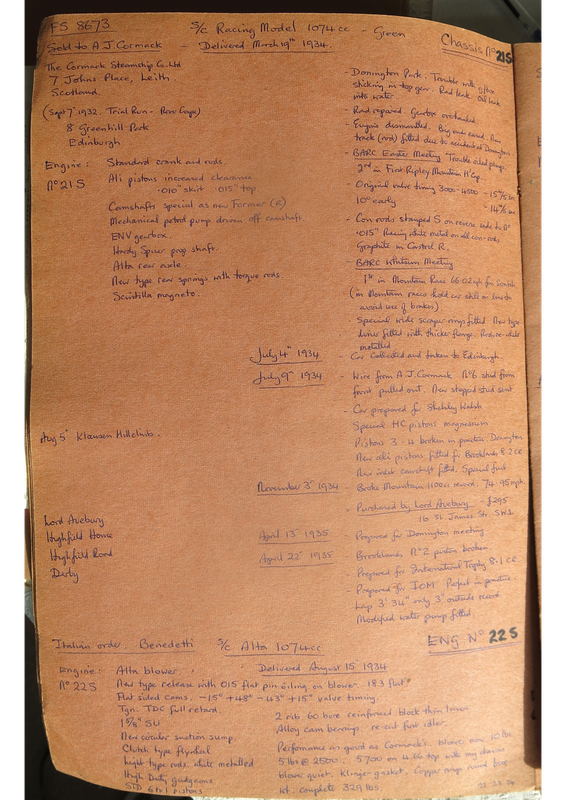 FS 8673
S/C Racing Model 1074cc - Green
Chassis No 21S
Sold to A.J. Cormack - Delivered March 19th 1934.
The Cormack Steamship Co. Ltd
7 Johns Place, Leith.
Scotland.
(Sept 7th 1932. Trial Run -
8 Greenhill Park
Edinburgh
Engine: Standard crank and rods
No 21S Ali pistons increased clearance
.010" skirt .015" top
Camshafts special as new Former (e)
Mechanical petrol pump driven off camshaft.
ENV gearbox
Hardy Spicer prop shaft.
Alta rear axle.
New type rear springs with torque rods
Scintilla magneto.
- Donington Park. Trouble with
sticking in top gear. Rad leak. Oil leak
into water
- Rad repaired. Gearbox overhauled.
- Engine dismantled. Big end eared. New
track (rod) fitted due to accident at Donington
- BARC Easter Meeting Trouble oiled plugs.
2nd in First Ripley Mountain H'Cap.
- Original valve timing 3000-4500 -
10° early
- Con rods stamped S on reverse side to No
.015" Racing white metal on all con-rods
Graphite in Castrol R.
- BARC Whitsun Meeting
1st in Mountain Race 66.02 mph for Scratch
(in Mountain races hold car still on line to
avoid use of brakes)
Special wide scraper rings fitted. New type
liner fitted with thicker flange. Rods re-white
metalled
July 4th 1934 - Car collected and taken to Edinburgh.
July 9th 1934 - Wire from A J. Cormack. No 6 stud from
front pulled out. New stepped stud sent
- Car prepared for Shelsley Walsh
Aug 5th Klausen Hillclimb.
Special HC pistons magnesium
Pistons 3 & 4 broken in practice Donington
New ali pistons fitted for Brooklands 8.2 CR
New inlet camshaft fitted. Special fuel
November 3rd 1934 - Broke Mountain 1100cc record. 74.95mph.
- Purchased by Lord Avebury - £295
16 St. James St. SW1
Lord Avebury
Highfield House
Highfield Road
Derby
April 13th 1935 - Prepared for Donington meeting
April 22nd 1935 - Brooklands No 2 piston broken
- Prepared for International Trophy 8.1 CR
- Prepared for IOM. Perfect in practice
Lap 3' 34" only 3" outside record
Modified water pump fitted.
Italian order. Benedetti S/C Alta 1074cc
ENG No 22S
Delivered August 15th 1934
Engine: Alta blower
No 22S New type release with 015 flat pin oiling on blower. 183 flat
Flat sided cams. -15° +48° -43° +15° valve timing.
Ign. TDC full retard.
1 5/8" SU
New circular suction sump.
Clutch type flywheel
Light type rods. white metalled
High Duty gudgeons
STD 6 to 1 pistons
2 rib 60 bore reinforced block thin liners
Alloy cam bearings. re-cut first idler.
Performance as good as Cormacks. blower now 10 lbs.
5 lbs @ 2500. 5700 on 4.66 top
blower quiet. Klinger gasket. Copper rings round bores
Wt. complete 329 lbs.